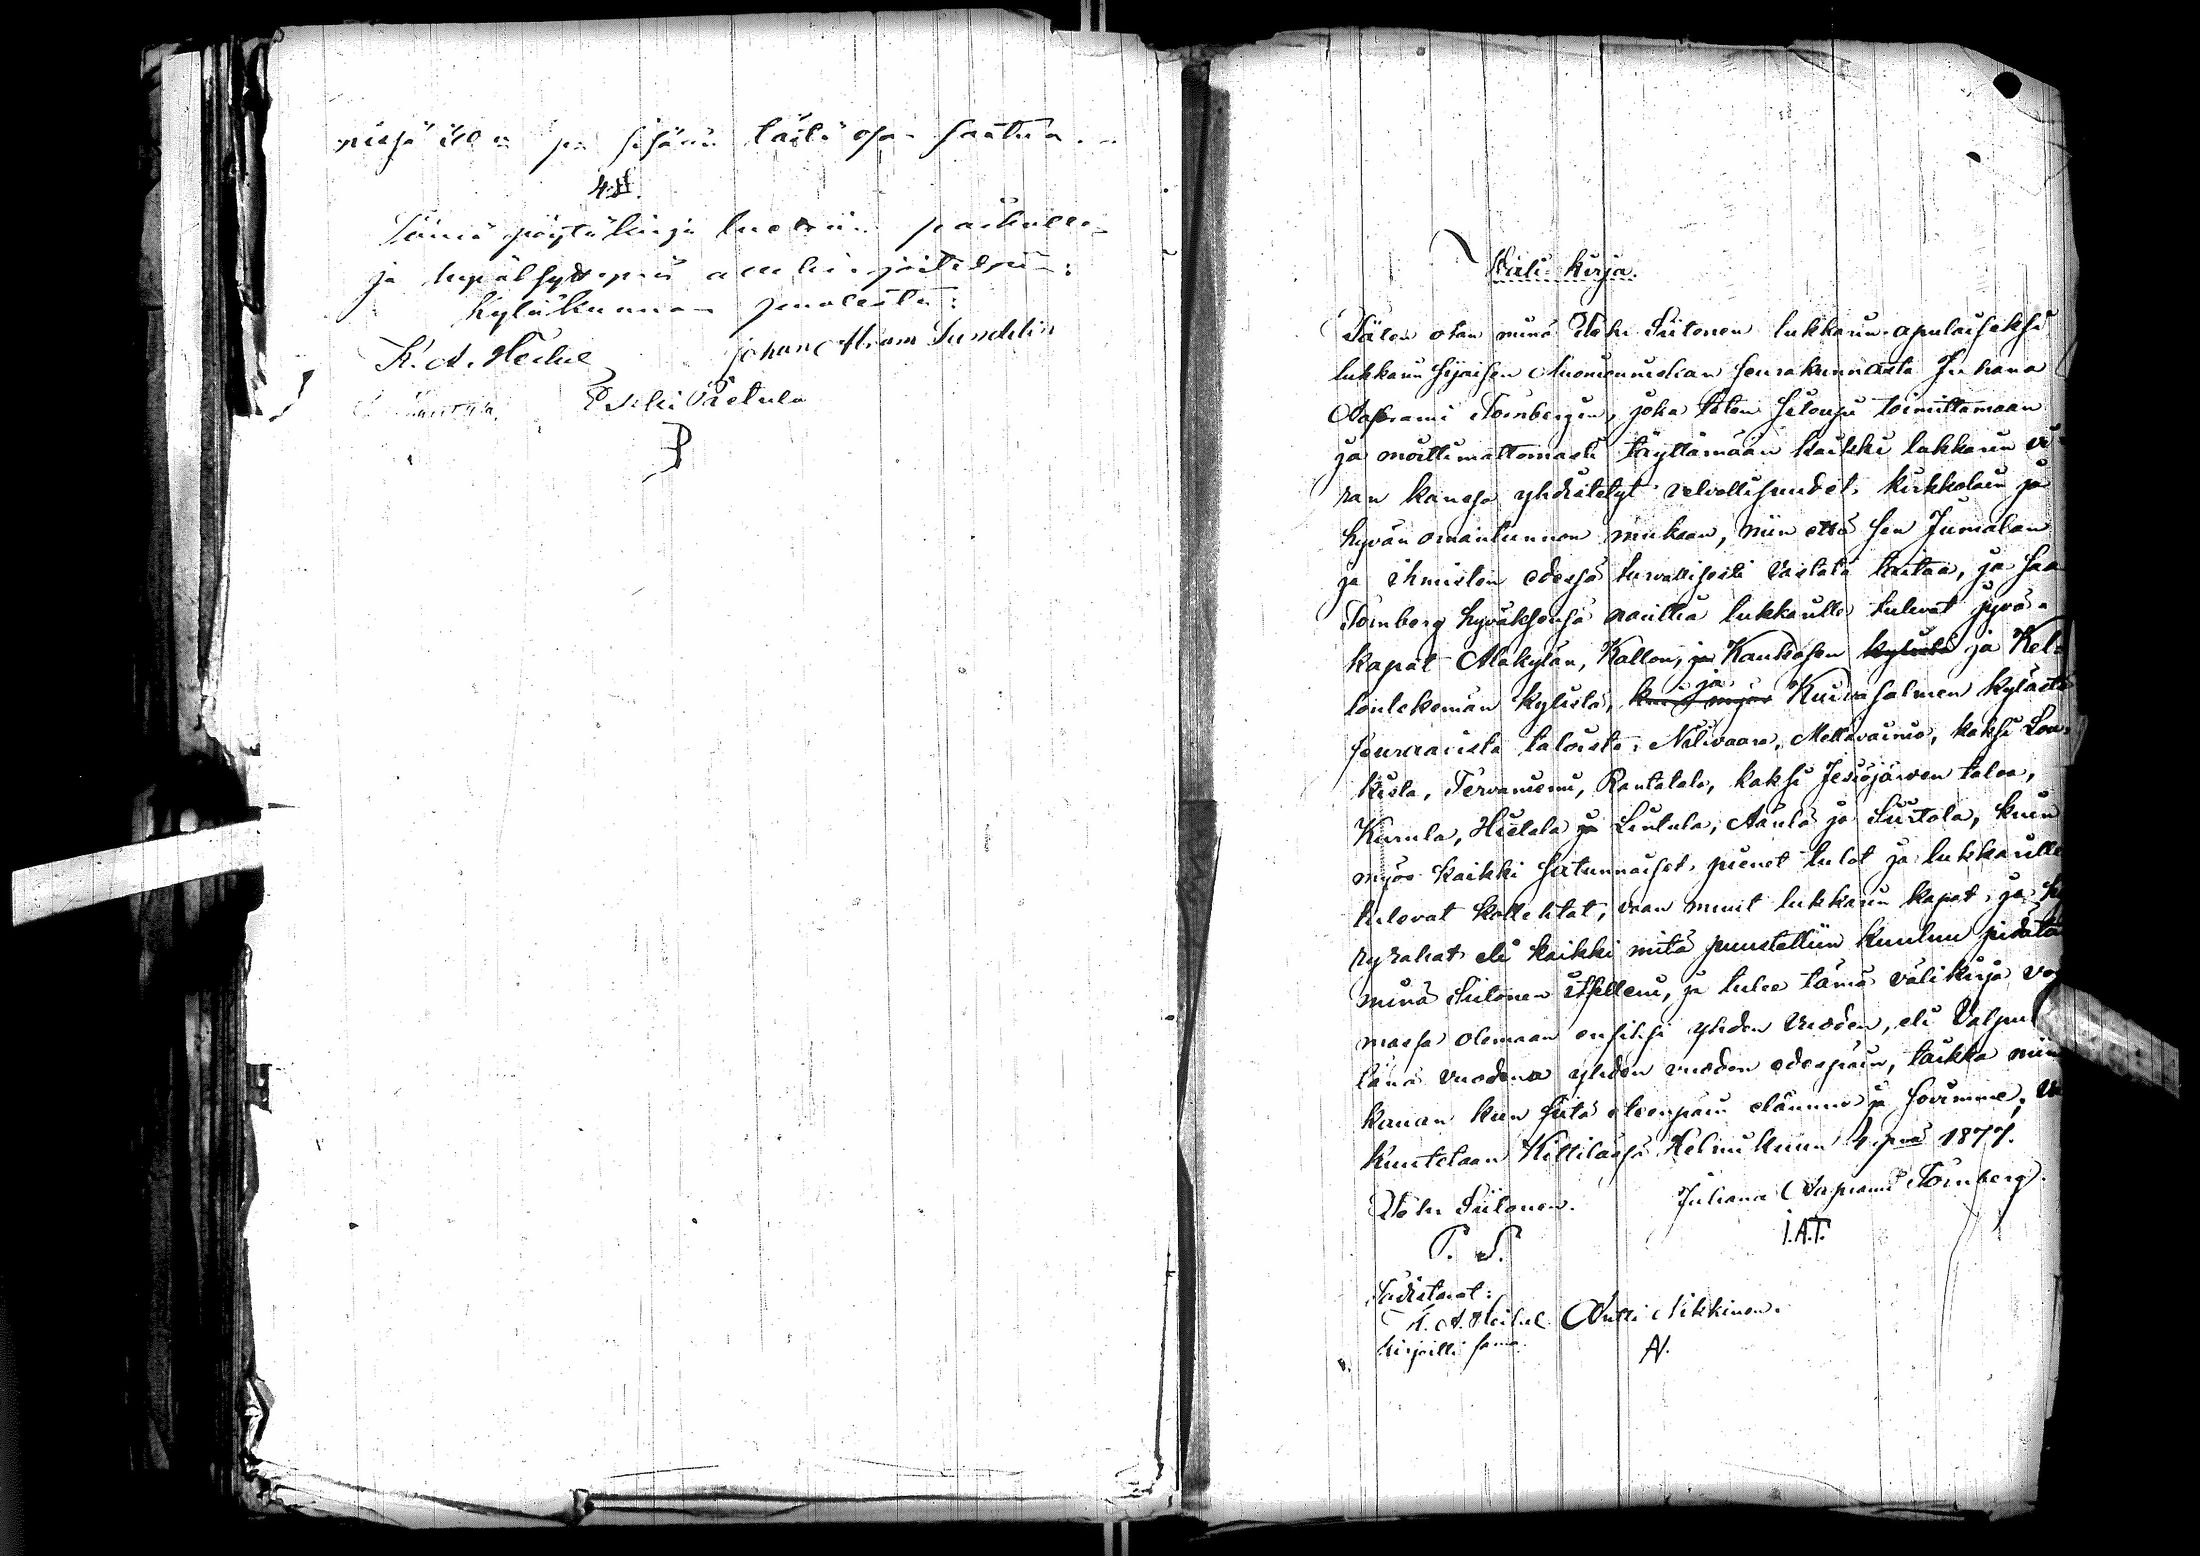 tästä osan
4 §.
Tämä pöytäkirja luettiin paikalla
ja hyväksyttynä allekirjoitettiin:
Kyläkunnan puolesta:
K. A. Heikel Johan Abram Sundelin
Erkki Paetula
Väli-kirja.
Täten otan minä Pekr Siitonen lukkarin-apulaiseksi
lukkarin sijaisen Muonionniskan seurakunnasta Juhana
Aaprami Törnbergin, joka täten sitoupi toimittamaan
ja moittimattomasti täyttämään kaikki lukkarin vi-
ran kanssa yhdistetyt velvollisuudet, kirkkolain ja
hyvän omantunnon mukaan, niin että sen Jumalan
ja ihmisten edessä turvallisesti vastata taitaa, ja saa
Törnberg hyväksensä nauttia lukkarille tulevat jyvä-
kapat Alakylän, Kallon, ja Kaukosen kylistä ja Kel-
lontekemän kylistä, ja Kuivasalmen kylästä
seuraavista taloista: Nälivaara, Mettävainio, kaksi Lou-
kista, Tervaniemi, Rantatalo, kaksi Jesiöjärven taloa,
Kurula, Hietala ja Lintula, Aanlä ja Siirtola, kuin
myös kaikki satunnaiset, pienet tulot ja lukkarille
tulevat kollehtat, vaan muut lukkarin kapat, ja
ryrahat eli kaikki mitä puustelliin kuuluu pidätän
minä Siitonen itselleni, ja tulee tämä välikirja voi-
massa olemaan ensiksi yhden vuoden, eli Valpu
tänä vuodena yhden vuoden edespäin, taikka niin
kauan kun siitä eteenpäin elämme ja sovimme, va
kuutetaan Kittilässä Helmikuun 4 pnä 1877.
Pekr Siitonen. Juhana Aaprami Törnberg.
P. S. J.A.T.
Todistavat:
K. A. Heikel Antti Nikkinen.
kirjoitti sama. AN.